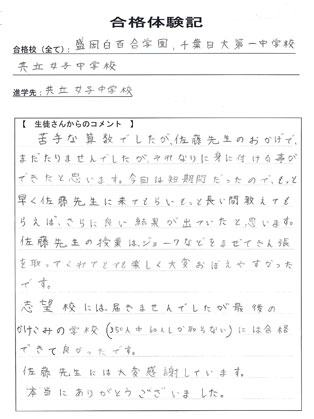 合格体験記
合格校（全て）： 盛岡白百合学園，千葉日大第一中学校
共立女子中学校
進学先： 共立女子中学校
【 生徒さんからのコメント 】
苦手な算数でしたが、佐藤先生のおかげで、
まだたりませんでしたが、それなりに身に付ける事が
できたと思います。今回は短期間だったので、もっと
早く佐藤先生に来てもらいもっと長い間教えても
らえば、さらに良い結果が出ていたと思います。
佐藤先生の授業は、ジョークなどをまぜてきん張
を取ってくれてとても楽しく大変おぼえやすかった
です。
志望校には、届きませんでしたが最後の
かけこみの学校（350人中60人しか取らない）には合格
できて良かったです。
佐藤先生には大変感謝しています。
本当にありがとうございました。